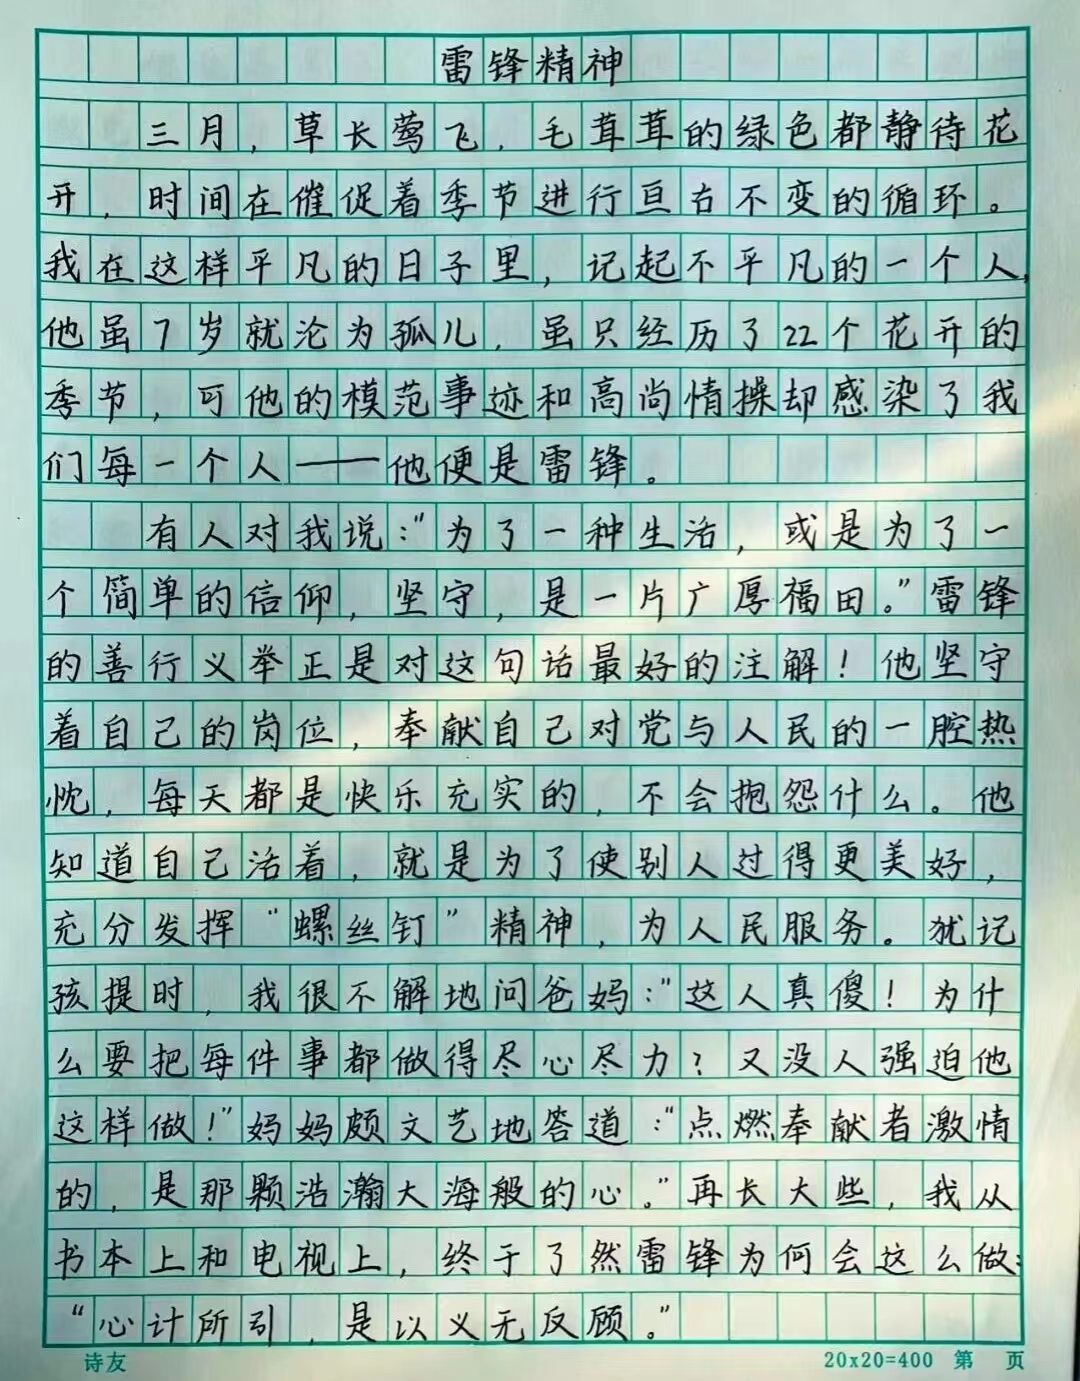 雷锋精神
三月，草长莺飞，毛茸茸的绿色都静待花
开，时间在催促着季节进行亘古不变的循环。
我在这样平凡的日子里，记起不平凡的一个人，
他虽7岁就沦为孤儿，虽只经历了22个花开的
季节，可他的模范事迹和高尚情操却感染了我
们每一个人——他便是雷锋。
有人对我说：“为了一种生活，或是为了一
个简单的信仰，坚守，是一片广厚福田。”雷锋
的善行义举正是对这句话最好的注解！他坚守
着自己的岗位，奉献自己对党与人民的一腔热
忱，每天都是快乐充实的，不会抱怨什么。他
知道自己活着，就是为了使别人过得更美好，
充分发挥“螺丝钉”精神，为人民服务。犹记
孩提时，我很不解地问爸妈：“这人真傻！为什
么要把每件事都做得尽心尽力？又没人强迫他
这样做！”妈妈颇文艺地答道：“点燃奉献者激情
的，是那颗浩瀚大海般的心。”再长大些，我从
书本上和电视上，终于了然雷锋为何会这么做：
“心计所引，是以义无反顾。”
诗友 20x20=400 第 页